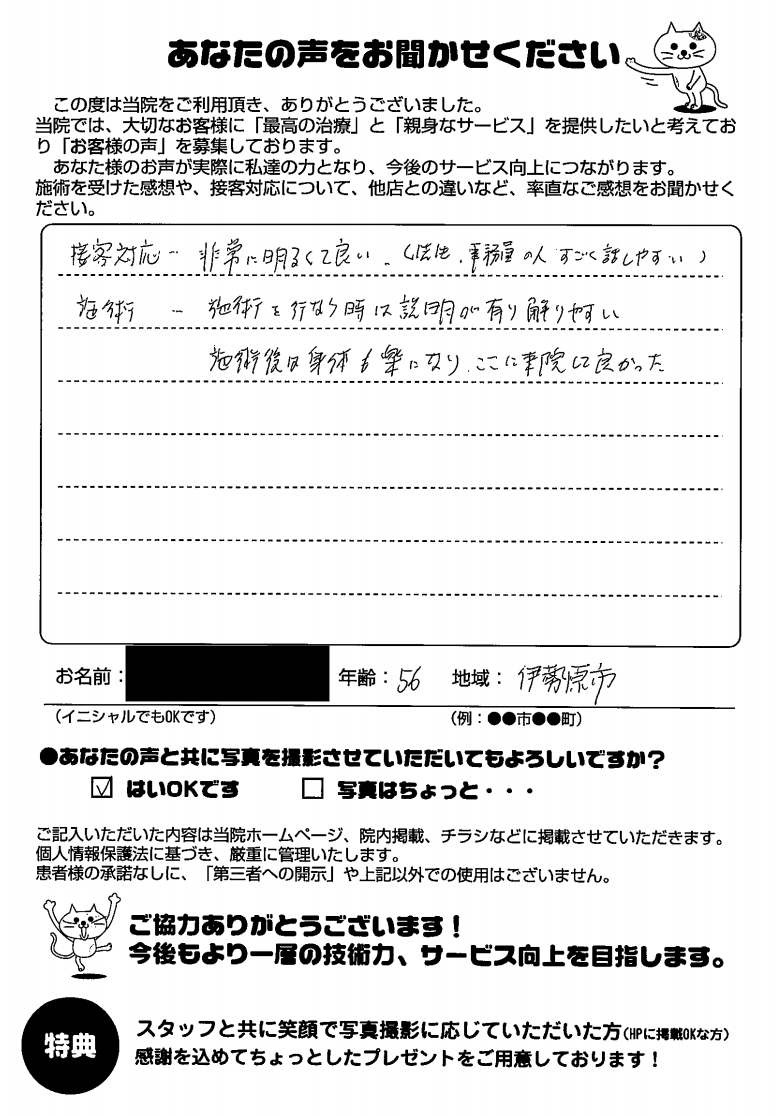 あなたの声をお聞かせください
この度は当院をご利用頂き、ありがとうございました。
当院では、大切なお客様に「最高の治療」と「親身なサービス」を提供したいと考えてお
り「お客様の声」を募集しております。
あなた様のお声が実際に私達の力となり、今後のサービス向上につながります。
施術を受けた感想や、接客対応について、他店との違いなど、率直なご感想をお聞かせく
ださい。
接客対応 … 非常に明るくて良い。(先生、事務員の人 すごく話しやすい)
施術 … 施術を行なう時は説明が有り解りやすい
施術後は身体も楽になり、ここに来院して良かった
お名前： 年齢：56 地域：伊勢原市
(イニシャルでもOKです) (例：●●市●●町)
●あなたの声と共に写真を撮影させていただいてもよろしいですか？
☑ はいOKです □ 写真はちょっと・・・
ご記入いただいた内容は当院ホームページ、院内掲載、チラシなどに掲載させていただきます。
個人情報保護法に基づき、厳重に管理いたします。
患者様の承諾なしに、「第三者への開示」や上記以外での使用はございません。
ご協力ありがとうございます！
今後もより一層の技術力、サービス向上を目指します。
特典
スタッフと共に笑顔で写真撮影に応じていただいた方(HPに掲載OKな方)
感謝を込めてちょっとしたプレゼントをご用意しております！